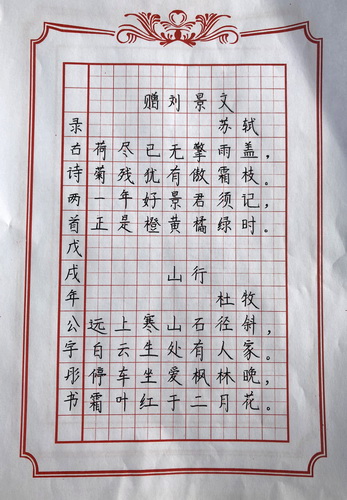 赠刘景文
苏轼
荷尽已无擎雨盖，
菊残犹有傲霜枝。
一年好景君须记，
正是橙黄橘绿时。
山行
杜牧
远上寒山石径斜，
白云生处有人家。
停车坐爱枫林晚，
霜叶红于二月花。
录古诗两首戊戌年公字彤书